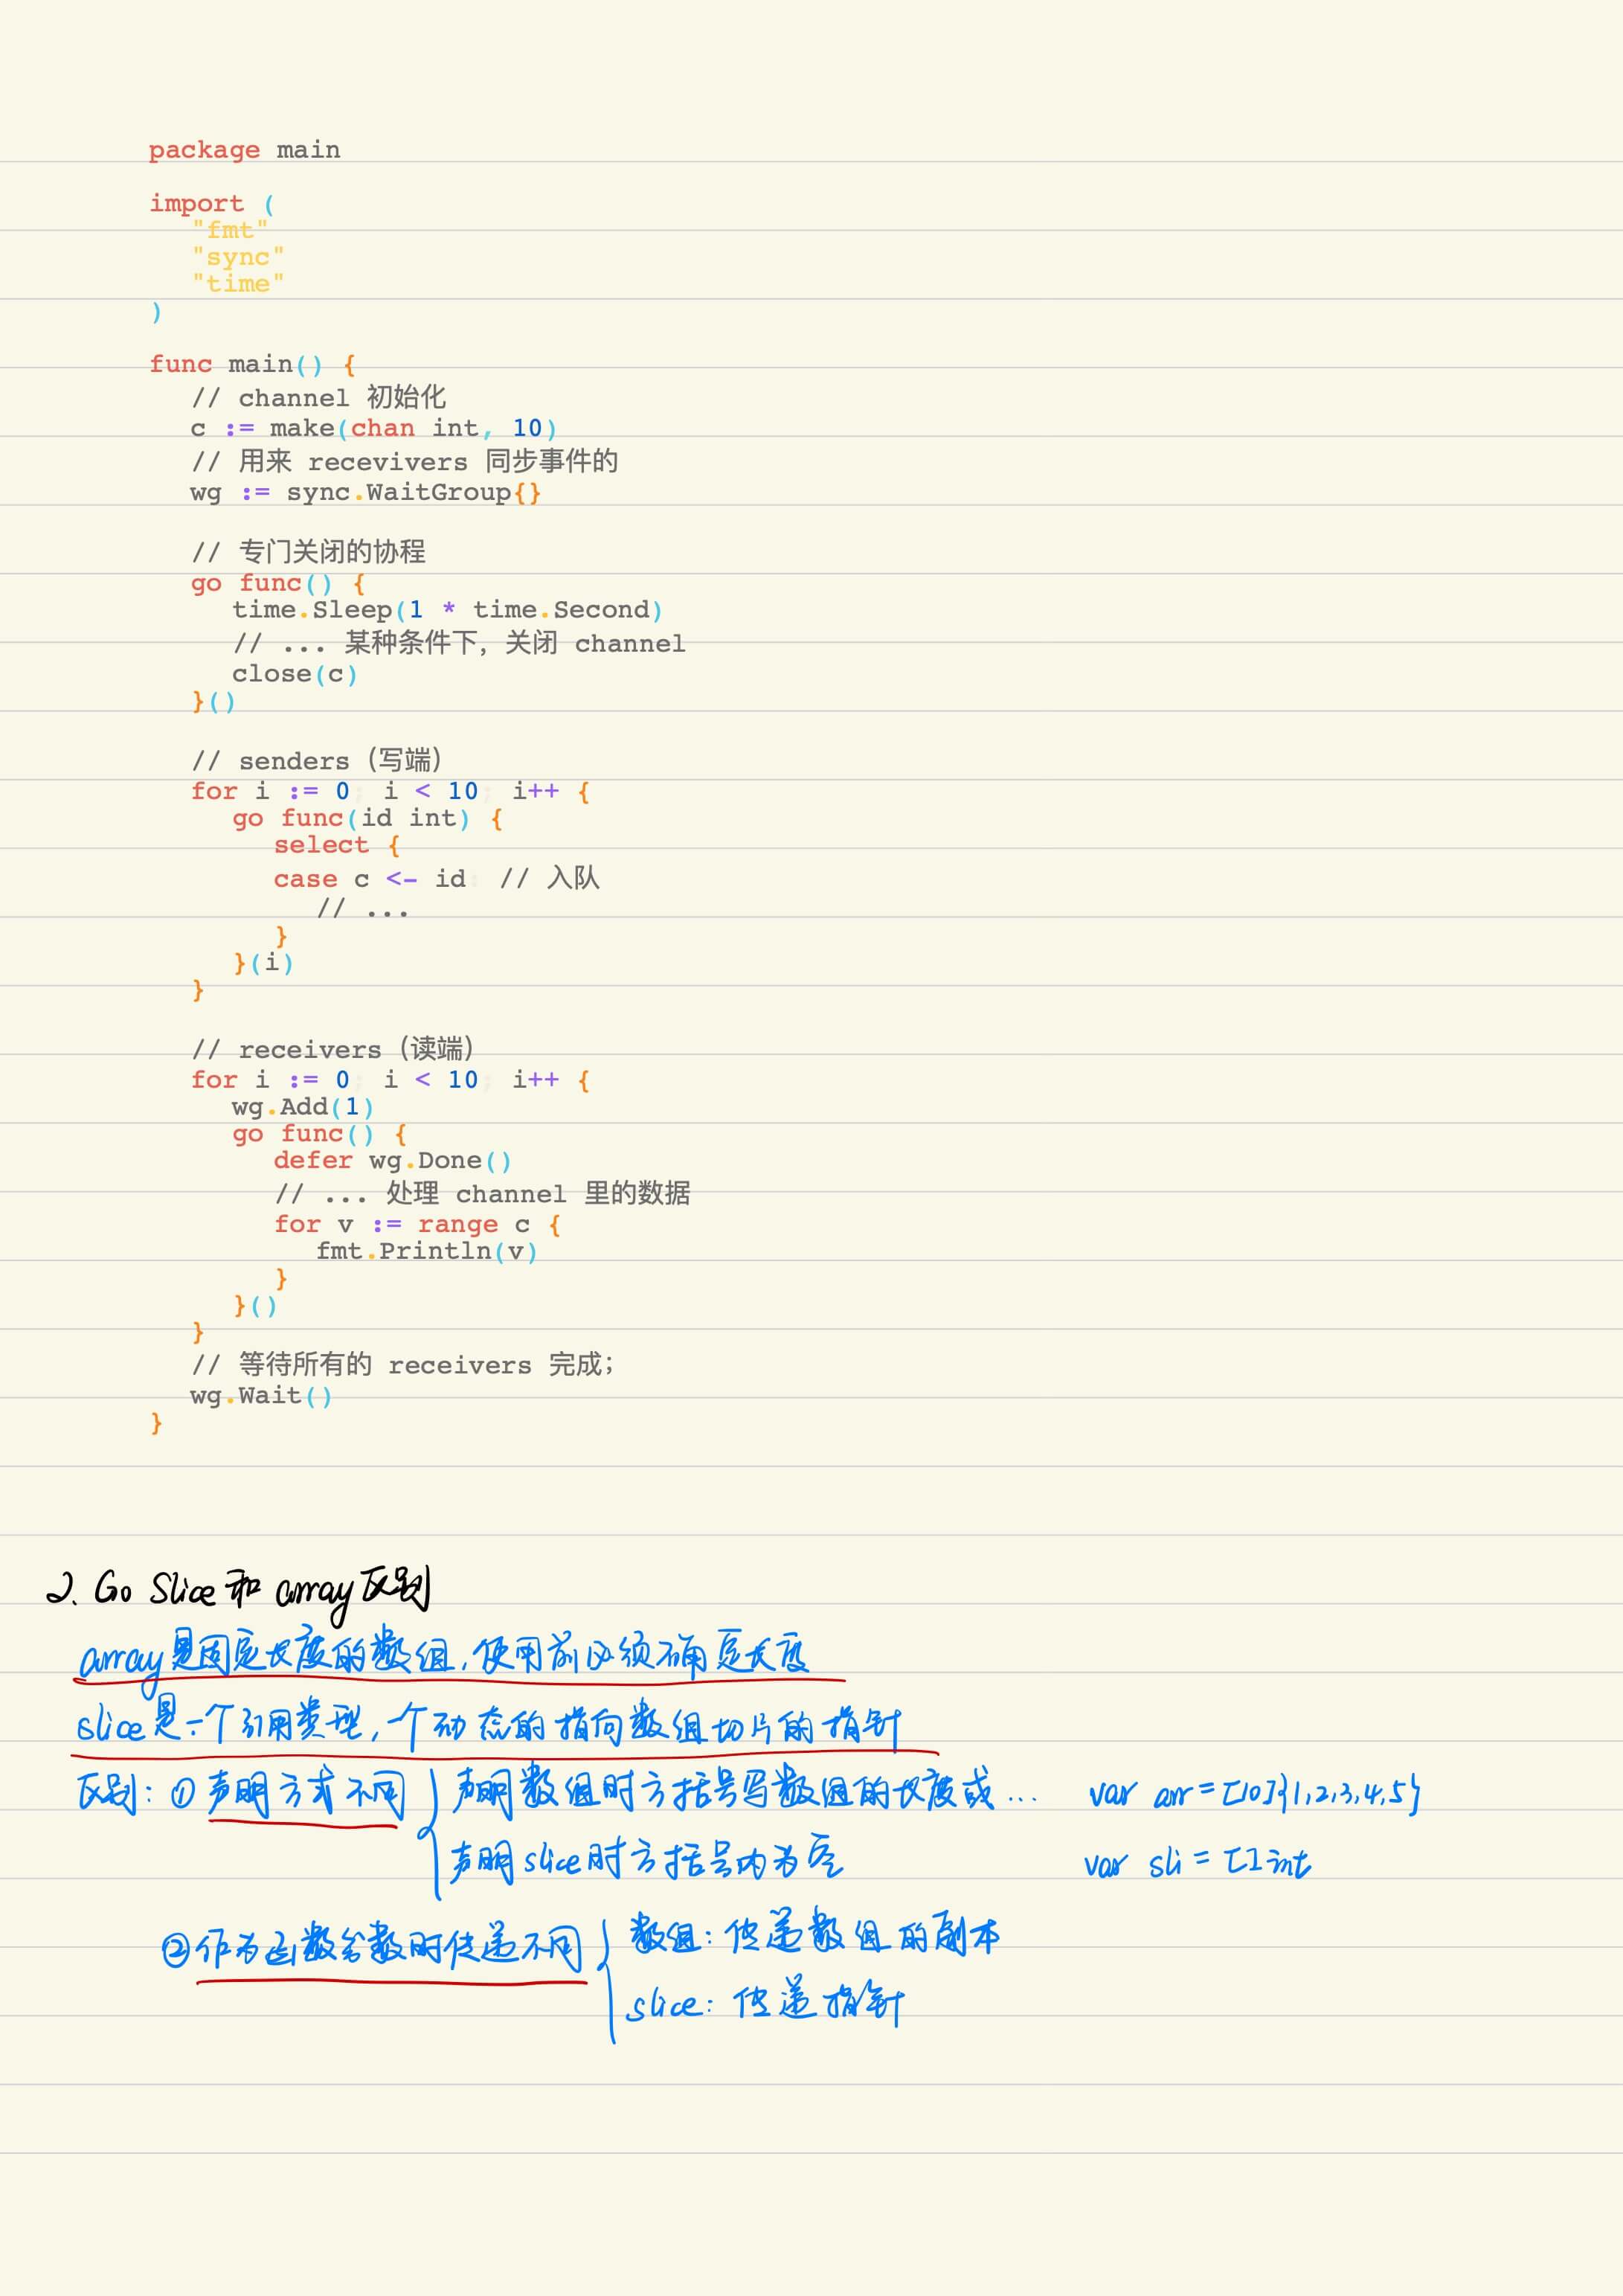 package main

import (
   "fmt"
   "sync"
   "time"
)

func main() {
   // channel 初始化
   c := make(chan int, 10)
   // 用来 recevivers 同步事件的
   wg := sync.WaitGroup{}

   // 专门关闭的协程
   go func() {
      time.Sleep(1 * time.Second)
      // ... 某种条件下，关闭 channel
      close(c)
   }()

   // senders（写端）
   for i := 0; i < 10; i++ {
      go func(id int) {
         select {
         case c <- id: // 入队
            // ...
         }
      }(i)
   }

   // receivers（读端）
   for i := 0; i < 10; i++ {
      wg.Add(1)
      go func() {
         defer wg.Done()
         // ... 处理 channel 里的数据
         for v := range c {
            fmt.Println(v)
         }
      }()
   }
   // 等待所有的 receivers 完成；
   wg.Wait()
}

2. Go Slice 和 array 区别
array是固定长度的数组，使用前必须确定长度
slice是一个引用类型，一个动态的指向数组切片的指针
区别：① 声明方式不同 声明数组时方括号写数组的长度或... var arr = [10]{1,2,3,4,5}
声明slice时方括号内为空 var sli = []int
②作为函数参数时传递不同 数组：传递数组的副本
slice：传递指针